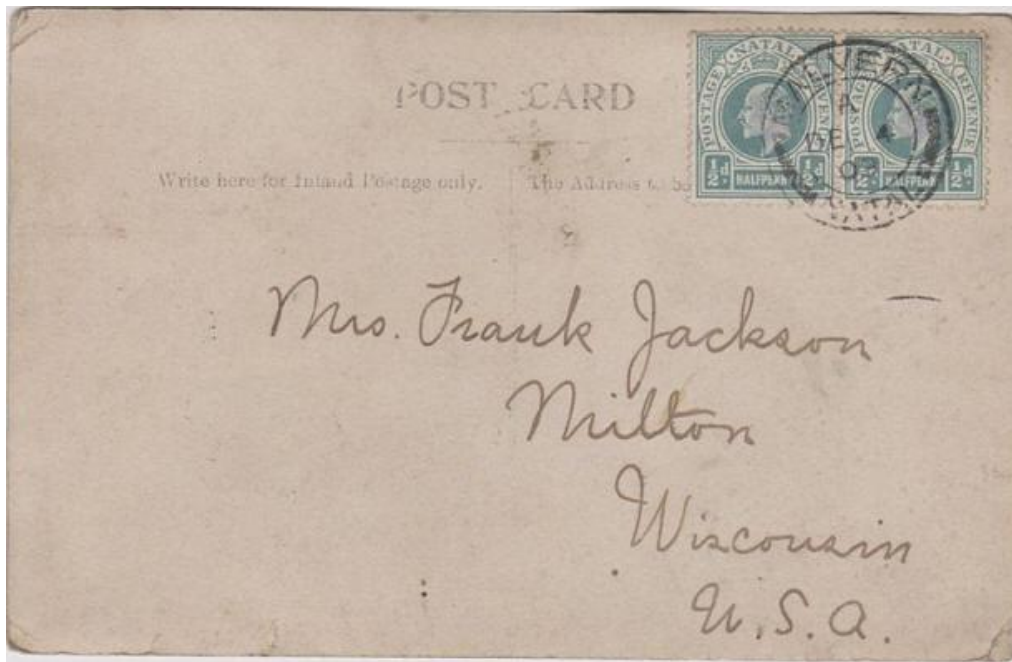 POST CARD
Write here for Inland Postage only. The Address to be
POSTAGE NATAL REVENUE
½d. HALFPENNY ½d.
POSTAGE NATAL REVENUE
½d. HALFPENNY ½d.
MALVERN
A
DE 4
NATAL
Mrs. Frank Jackson
Milton
Wisconsin
U.S.A.